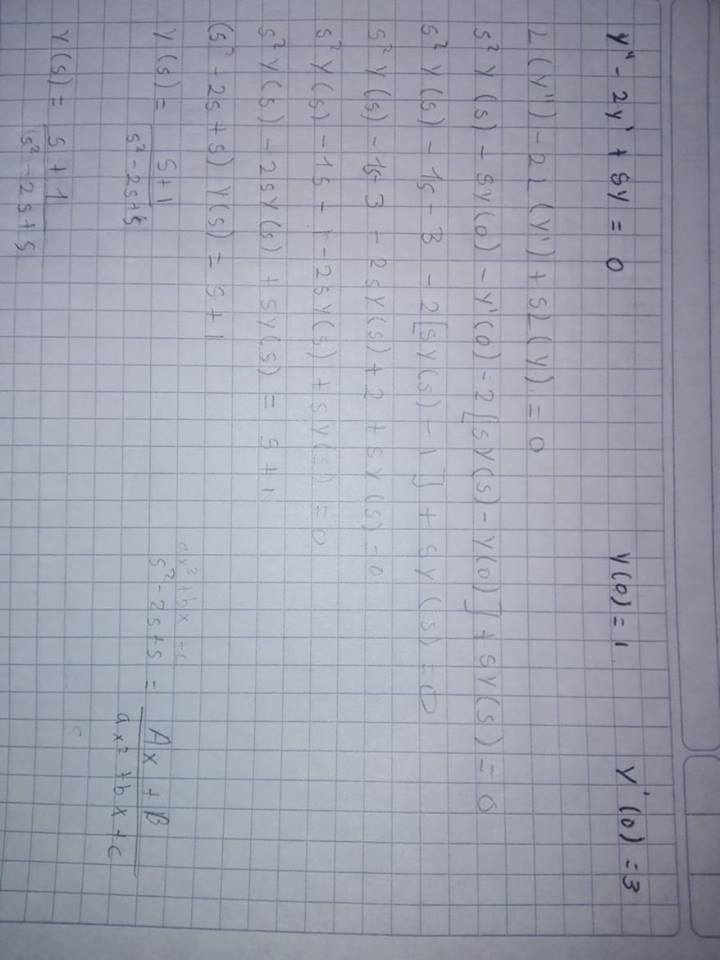 y'' - 2y' + 5y = 0 y(0) = 1 y'(0) = 3
L(y'') - 2L(y') + 5L(y) = 0
s² y(s) - sy(0) - y'(0) - 2[sy(s) - y(0)] + 5y(s) = 0
s² y(s) - 1s - 3 - 2[sy(s) - 1] + 5y(s) = 0
s² y(s) - 1s - 3 - 2sy(s) + 2 + 5y(s) = 0
s² y(s) - 1s - 1 - 2sy(s) + 5y(s) = 0
s² y(s) - 2sy(s) + 5y(s) = s + 1
(s² - 2s + 5) y(s) = s + 1
ax² + bx + c
y(s) = s+1 / s² - 2s + 5
s² - 2s + 5 = Ax + B / ax² + bx + c
y(s) = s + 1 / s² - 2s + 5